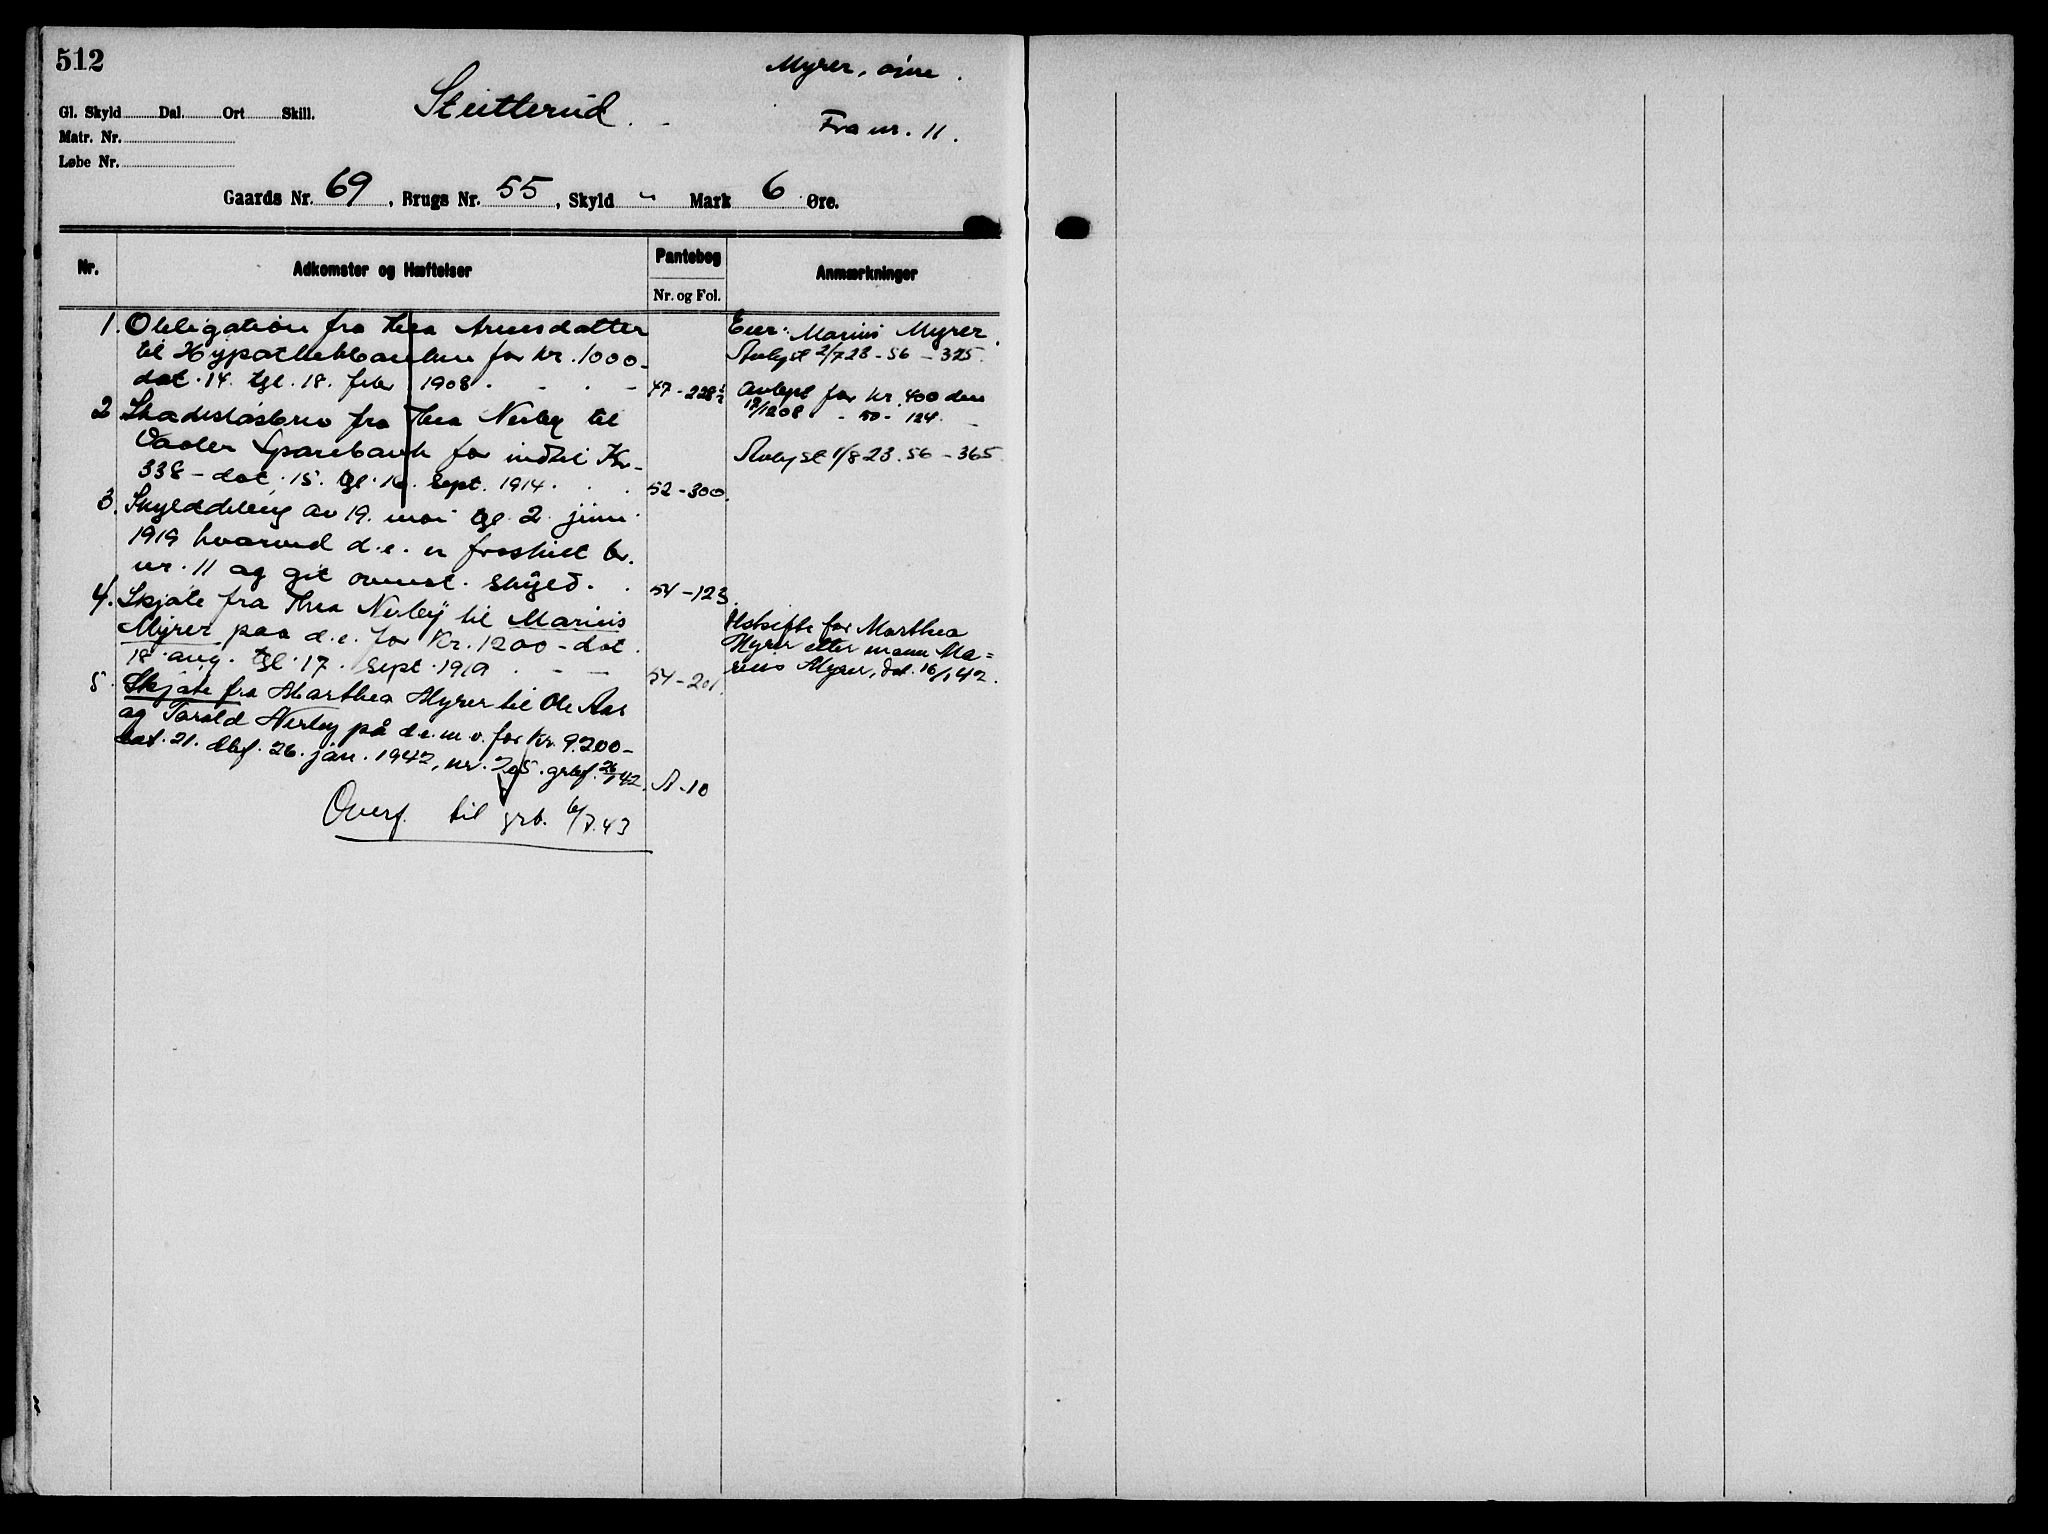 512
Myrer, øvre.
Gl. Skyld Dal. Ort Skill.
Stutterud.
Fra nr. 11.
Matr. Nr.
Løbe Nr.
Gaards Nr. 69, Brugs Nr. 55, Skyld - Mark 6 Øre.
Nr.
Adkomster og Hæftelser
Pantebog
Nr. og Fol.
Anmærkninger
1. Obligation fra Thea Arnesdatter
til Hypothekbanken for kr. 1000-
dat. 14. tgl. 18. febr 1908.
47-228
Eier: Marius Myrer.
Avlyst 2/7 23 - 56 - 325.
Avlyst for kr. 400 den
12/12 08 - 50 - 124.
2 Skadesløsbrev fra Thea Nerby til
Vaaler Sparebank for indtil Kr.
338 - dat. 15. tgl. 16. sept. 1914.
52-300.
Avlyst 1/8 23. 56 - 365
3. Skylddeling av 19. mai tgl. 2. juni
1919 hvorved d.e. er fraskilt br.
nr. 11 og git ovennt. skyld.
54-123.
4. Skjøte fra Thea Nerby til Marius
Myrer paa d.e. for Kr. 1200 - dat.
18. aug. tgl. 17. sept. 1919
54-201.
Utskifte for Marthea
Myrer etter mann Ma=
rius Myrer, dat. 16/1 42.
5 Skjøte fra Marthea Myrer til Ole Aas
og Torald Nerby på d.e. m.v. for Kr. 9.200-
dat. 21. dbf. 26. jan. 1942, nr. 205. grbf. 26/1 42.
A-10
Overf. til grb. 6/7.43